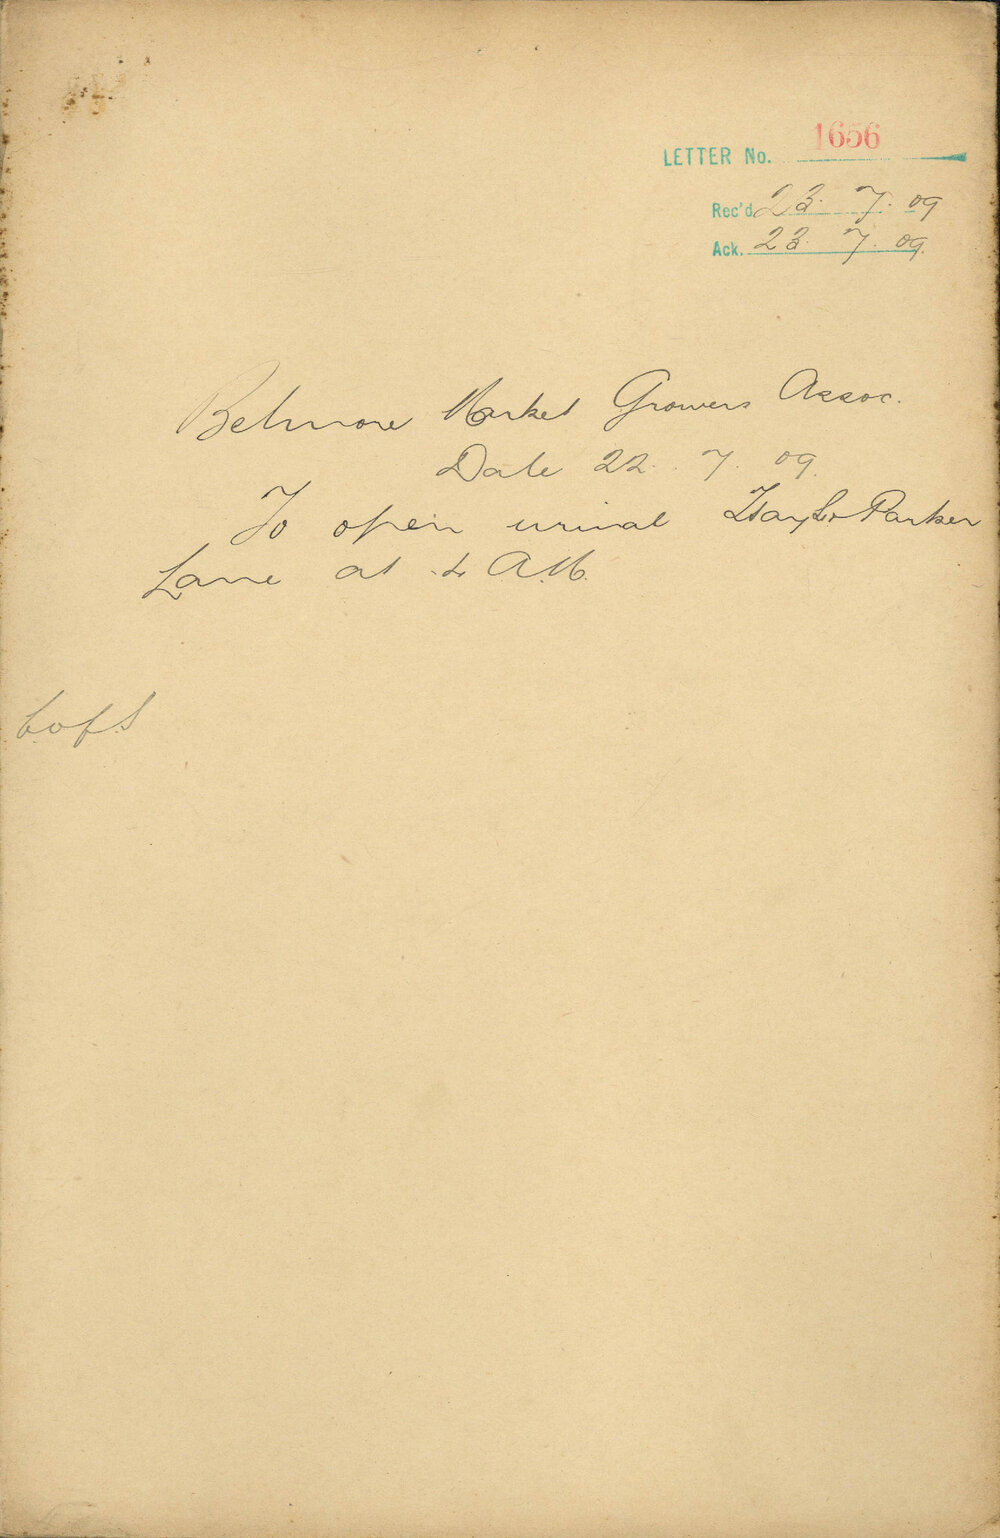 LETTER No. 1656
Rec'd 23. 7. 09
Ack. 23. 7. 09.
Belmore Market Growers Assoc.
Date 22. 7. 09.
To open urinal Hay & Parker
Lane at 4 A.M.
C.of.S